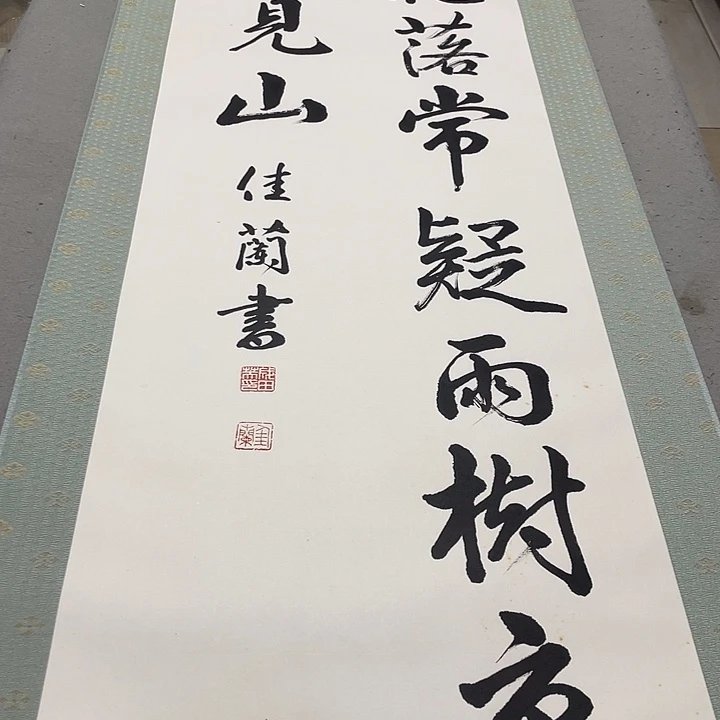 落常疑雨樹
見山
佳蘭書